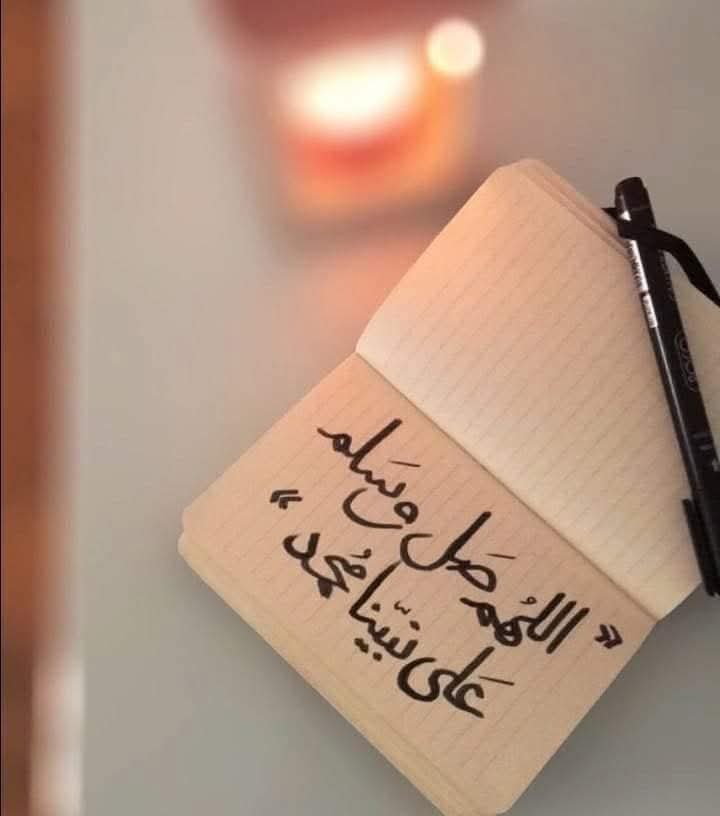 «اللهُم صَل وسَلم
عَلى نبيّنا مُحمد»